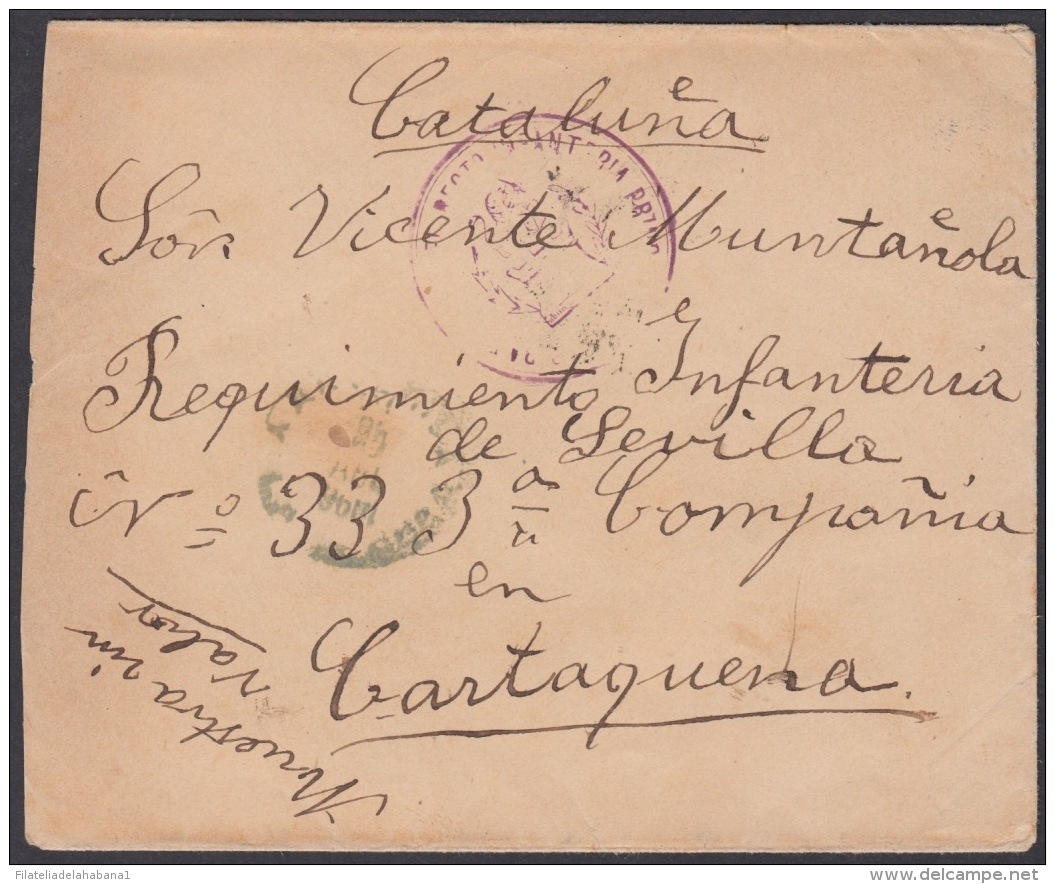 Cataluña
Sōr. Vicente Muntañola
Requimiento Infanteria
de Sevilla
Nº 33 3ª Compañia
en
Cartaquena.
Muestra sin
Valor
INFANTERIA
Filateliadelahabana1
delcampe.net